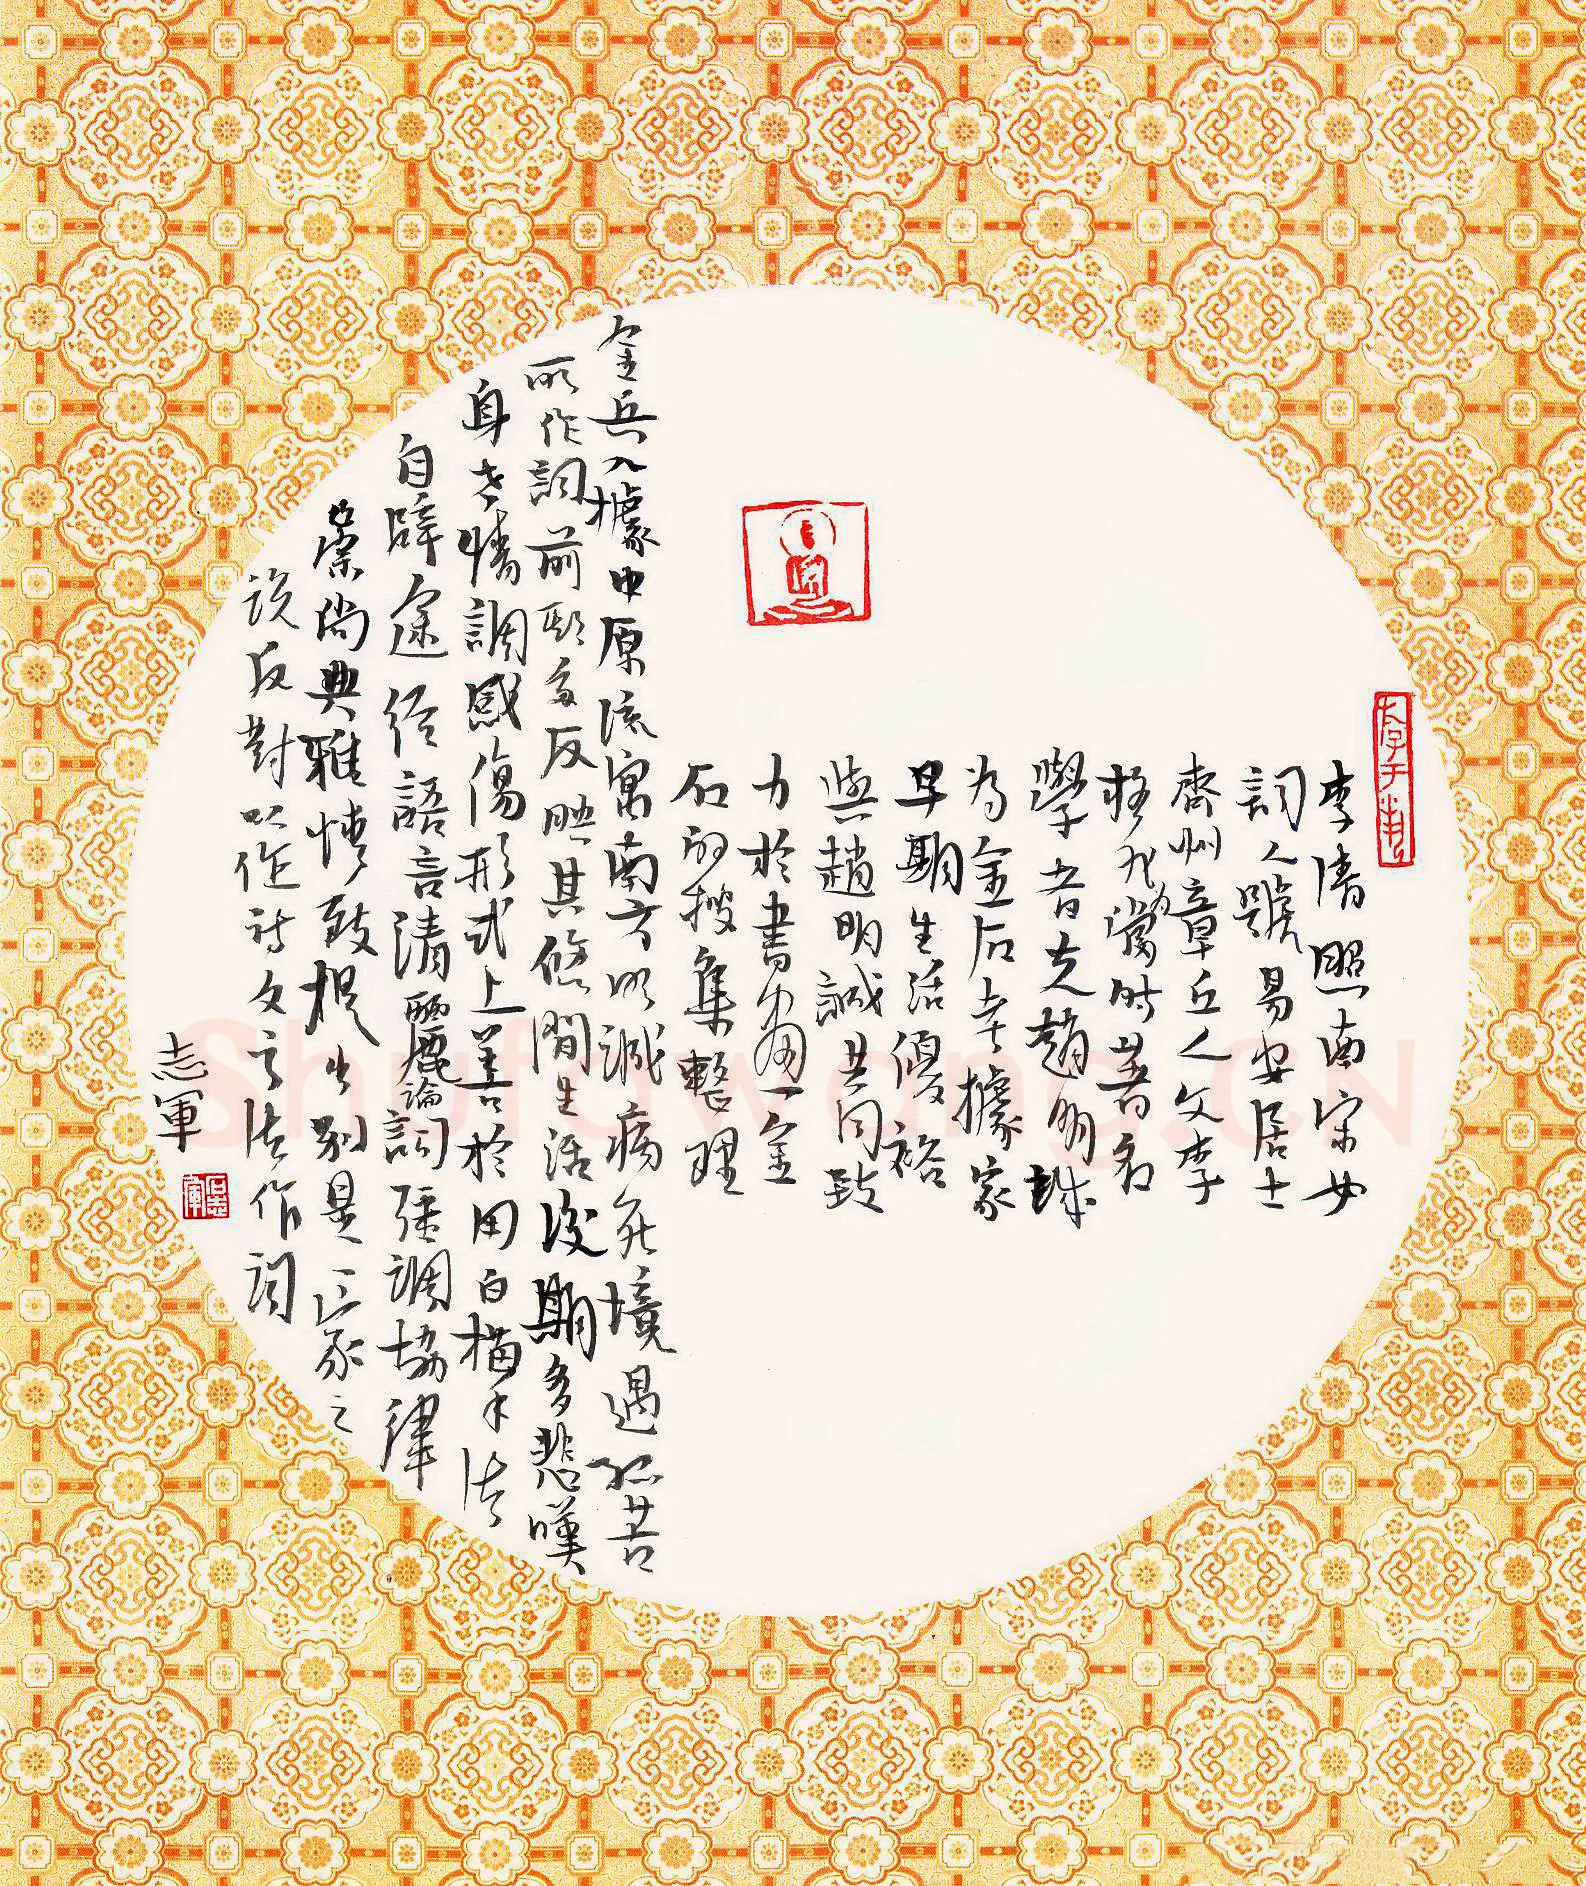 李清照南宋女
詞人號易安居士
齊州章丘人父李
格非為當時著名
學者夫趙明誠
為金石考據家
早期生活優裕
與趙明誠共同致
力於書畫金
石的搜集整理
金兵入據中原流寓南方明誠病死境遇孤苦
所作詞前期多反映其悠閒生活後期多悲嘆
身世情調感傷形式上善於用白描手法
自辟途徑語言清麗論詞強調協律
崇尚典雅情致提出別是一家之
說反對以作詩文之法作詞
志軍
Shufawang.CN